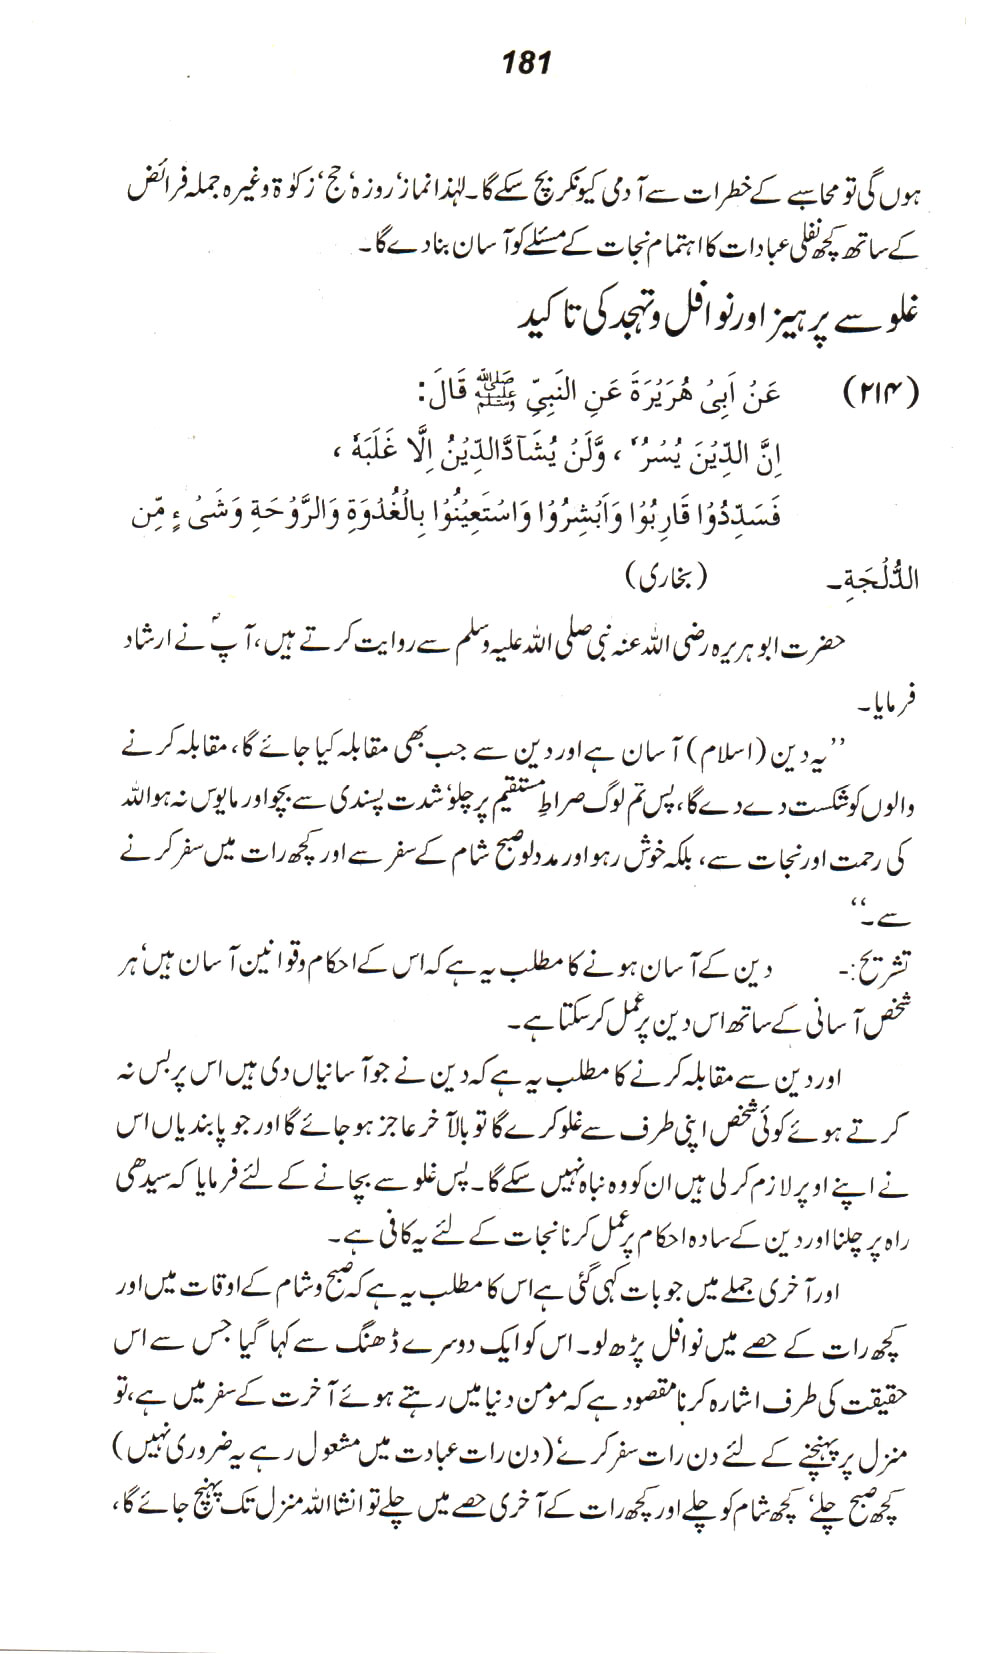 181
ہوں گی تو محاسبے کے خطرات سے آدمی کیونکر بچ سکے گا۔ لہٰذا نماز‘ روزہ‘ حج‘ زکوٰۃ وغیرہ جملہ فرائض
کے ساتھ کچھ نفلی عبادات کا اہتمام نجات کے مسئلے کو آسان بنا دے گا۔
غلو سے پرہیز اور نوافل و تہجد کی تاکید
(۲۱۴) عَنْ اَبِیْ هُرَیْرَةَ عَنِ النَّبِیِّ ﷺ قَالَ:
اِنَّ الدِّیْنَ یُسْرٌ ، وَّلَنْ یُّشَآدَّالدِّیْنُ اِلَّا غَلَبَهٗ ،
فَسَدِّدُوْا قَارِبُوْا وَاَبْشِرُوْا وَاسْتَعِیْنُوْا بِالْغُدْوَةِ وَالرَّوْحَةِ وَشَیْءٍ مِّن
الدُّلْجَةِ۔ (بخاری)
حضرت ابو ہریرہ رضی اللہ عنہ نبی صلی اللہ علیہ وسلم سے روایت کرتے ہیں، آپؐ نے ارشاد
فرمایا۔
’’یہ دین (اسلام) آسان ہے اور دین سے جب بھی مقابلہ کیا جائے گا، مقابلہ کرنے
والوں کو شکست دے دے گا، پس تم لوگ صراطِ مستقیم پر چلو‘ شدت پسندی سے بچو اور مایوس نہ ہو اللہ
کی رحمت اور نجات سے، بلکہ خوش رہو اور مدد لو صبح شام کے سفر سے اور کچھ رات میں سفر کرنے
سے۔‘‘
تشریح:۔ دین کے آسان ہونے کا مطلب یہ ہے کہ اس کے احکام و قوانین آسان ہیں‘ ہر
شخص آسانی کے ساتھ اس دین پر عمل کر سکتا ہے۔
اور دین سے مقابلہ کرنے کا مطلب یہ ہے کہ دین نے جو آسانیاں دی ہیں اس پر بس نہ
کرتے ہوئے کوئی شخص اپنی طرف سے غلو کرے گا تو بالآخر عاجز ہو جائے گا اور جو پابندیاں اس
نے اپنے اوپر لازم کر لی ہیں ان کو وہ نباہ نہیں سکے گا۔ پس غلو سے بچانے کے لئے فرمایا کہ سیدھی
راہ پر چلنا اور دین کے سادہ احکام پر عمل کرنا نجات کے لئے یہ کافی ہے۔
اور آخری جملے میں جو بات کہی گئی ہے اس کا مطلب یہ ہے کہ صبح و شام کے اوقات میں اور
کچھ رات کے حصے میں نوافل پڑھ لو۔ اس کو ایک دوسرے ڈھنگ سے کہا گیا جس سے اس
حقیقت کی طرف اشارہ کرنا مقصود ہے کہ مومن دنیا میں رہتے ہوئے آخرت کے سفر میں ہے، تو
منزل پر پہنچنے کے لئے دن رات سفر کرے‘ (دن رات عبادت میں مشغول رہے یہ ضروری نہیں)
کچھ صبح چلے‘ کچھ شام کو چلے اور کچھ رات کے آخری حصے میں چلے تو انشا اللہ منزل تک پہنچ جائے گا،